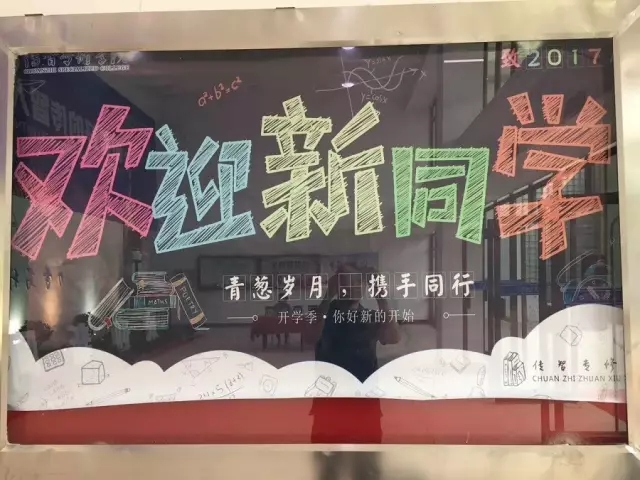 致2017
a²+b²=c²
y=sinx
y=cosx
欢迎新同学
MATHS
青葱岁月，携手同行
开学季·你好新的开始
传智专修
CHUAN ZHI ZHUAN XIU